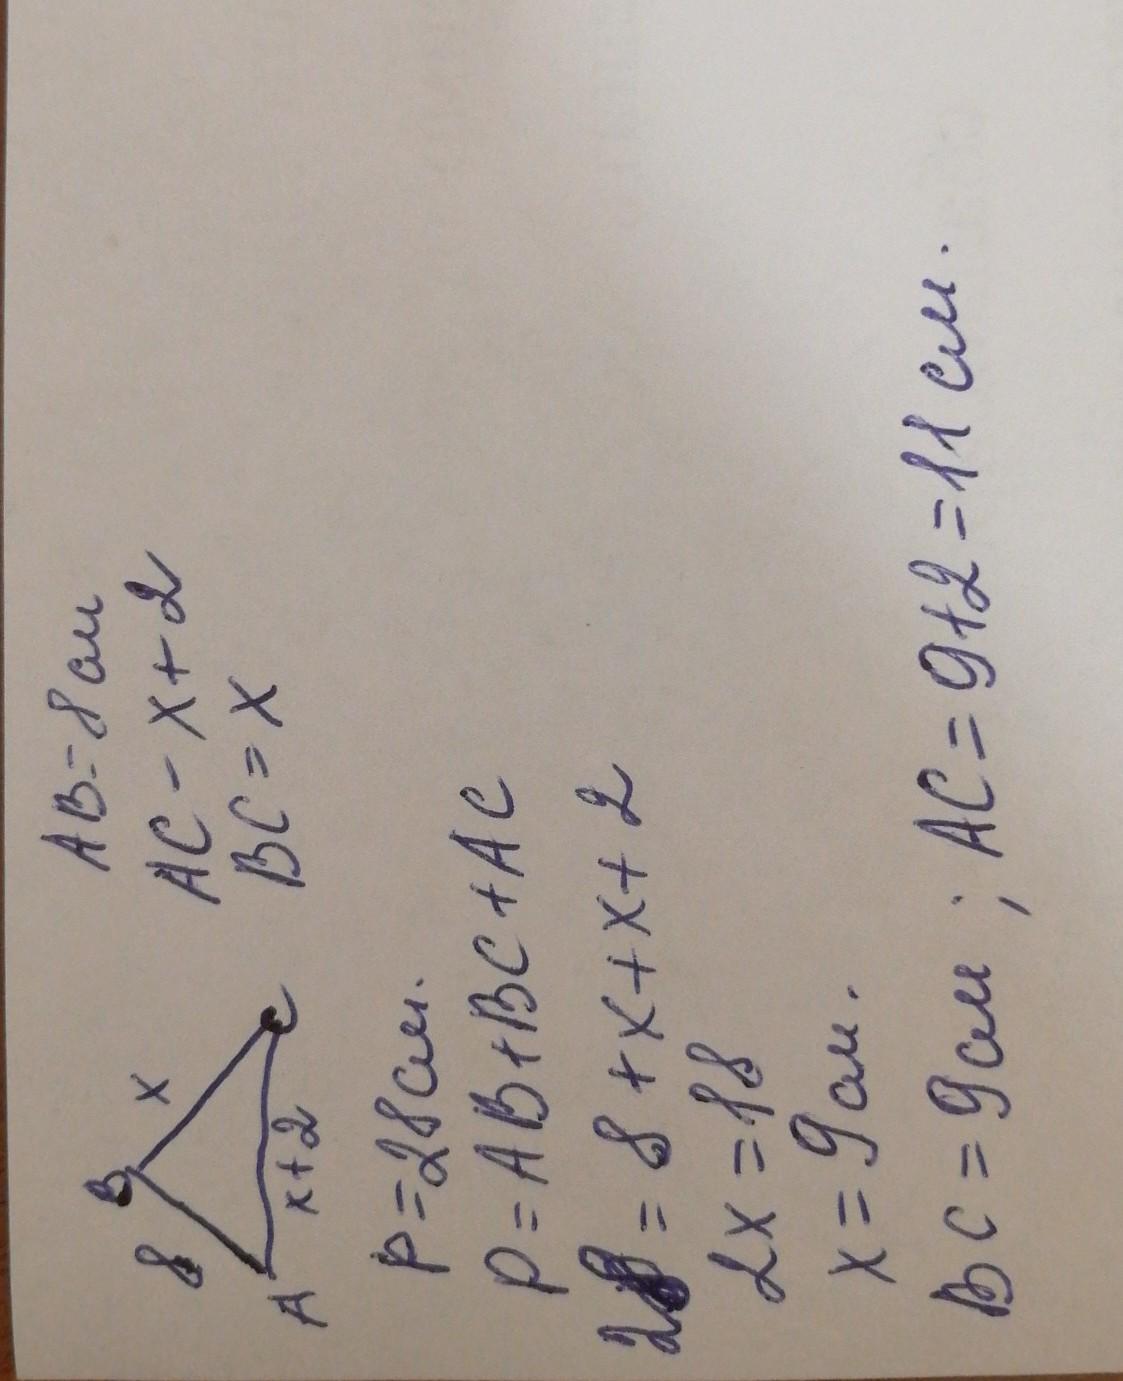 AB = 8 см
AC - x + 2
BC = x
B
8
x
A
x + 2
C
P = 28 см.
P = AB + BC + AC
28 = 8 + x + x + 2
2x = 18
x = 9 см.
BC = 9 см ; AC = 9 + 2 = 11 см.